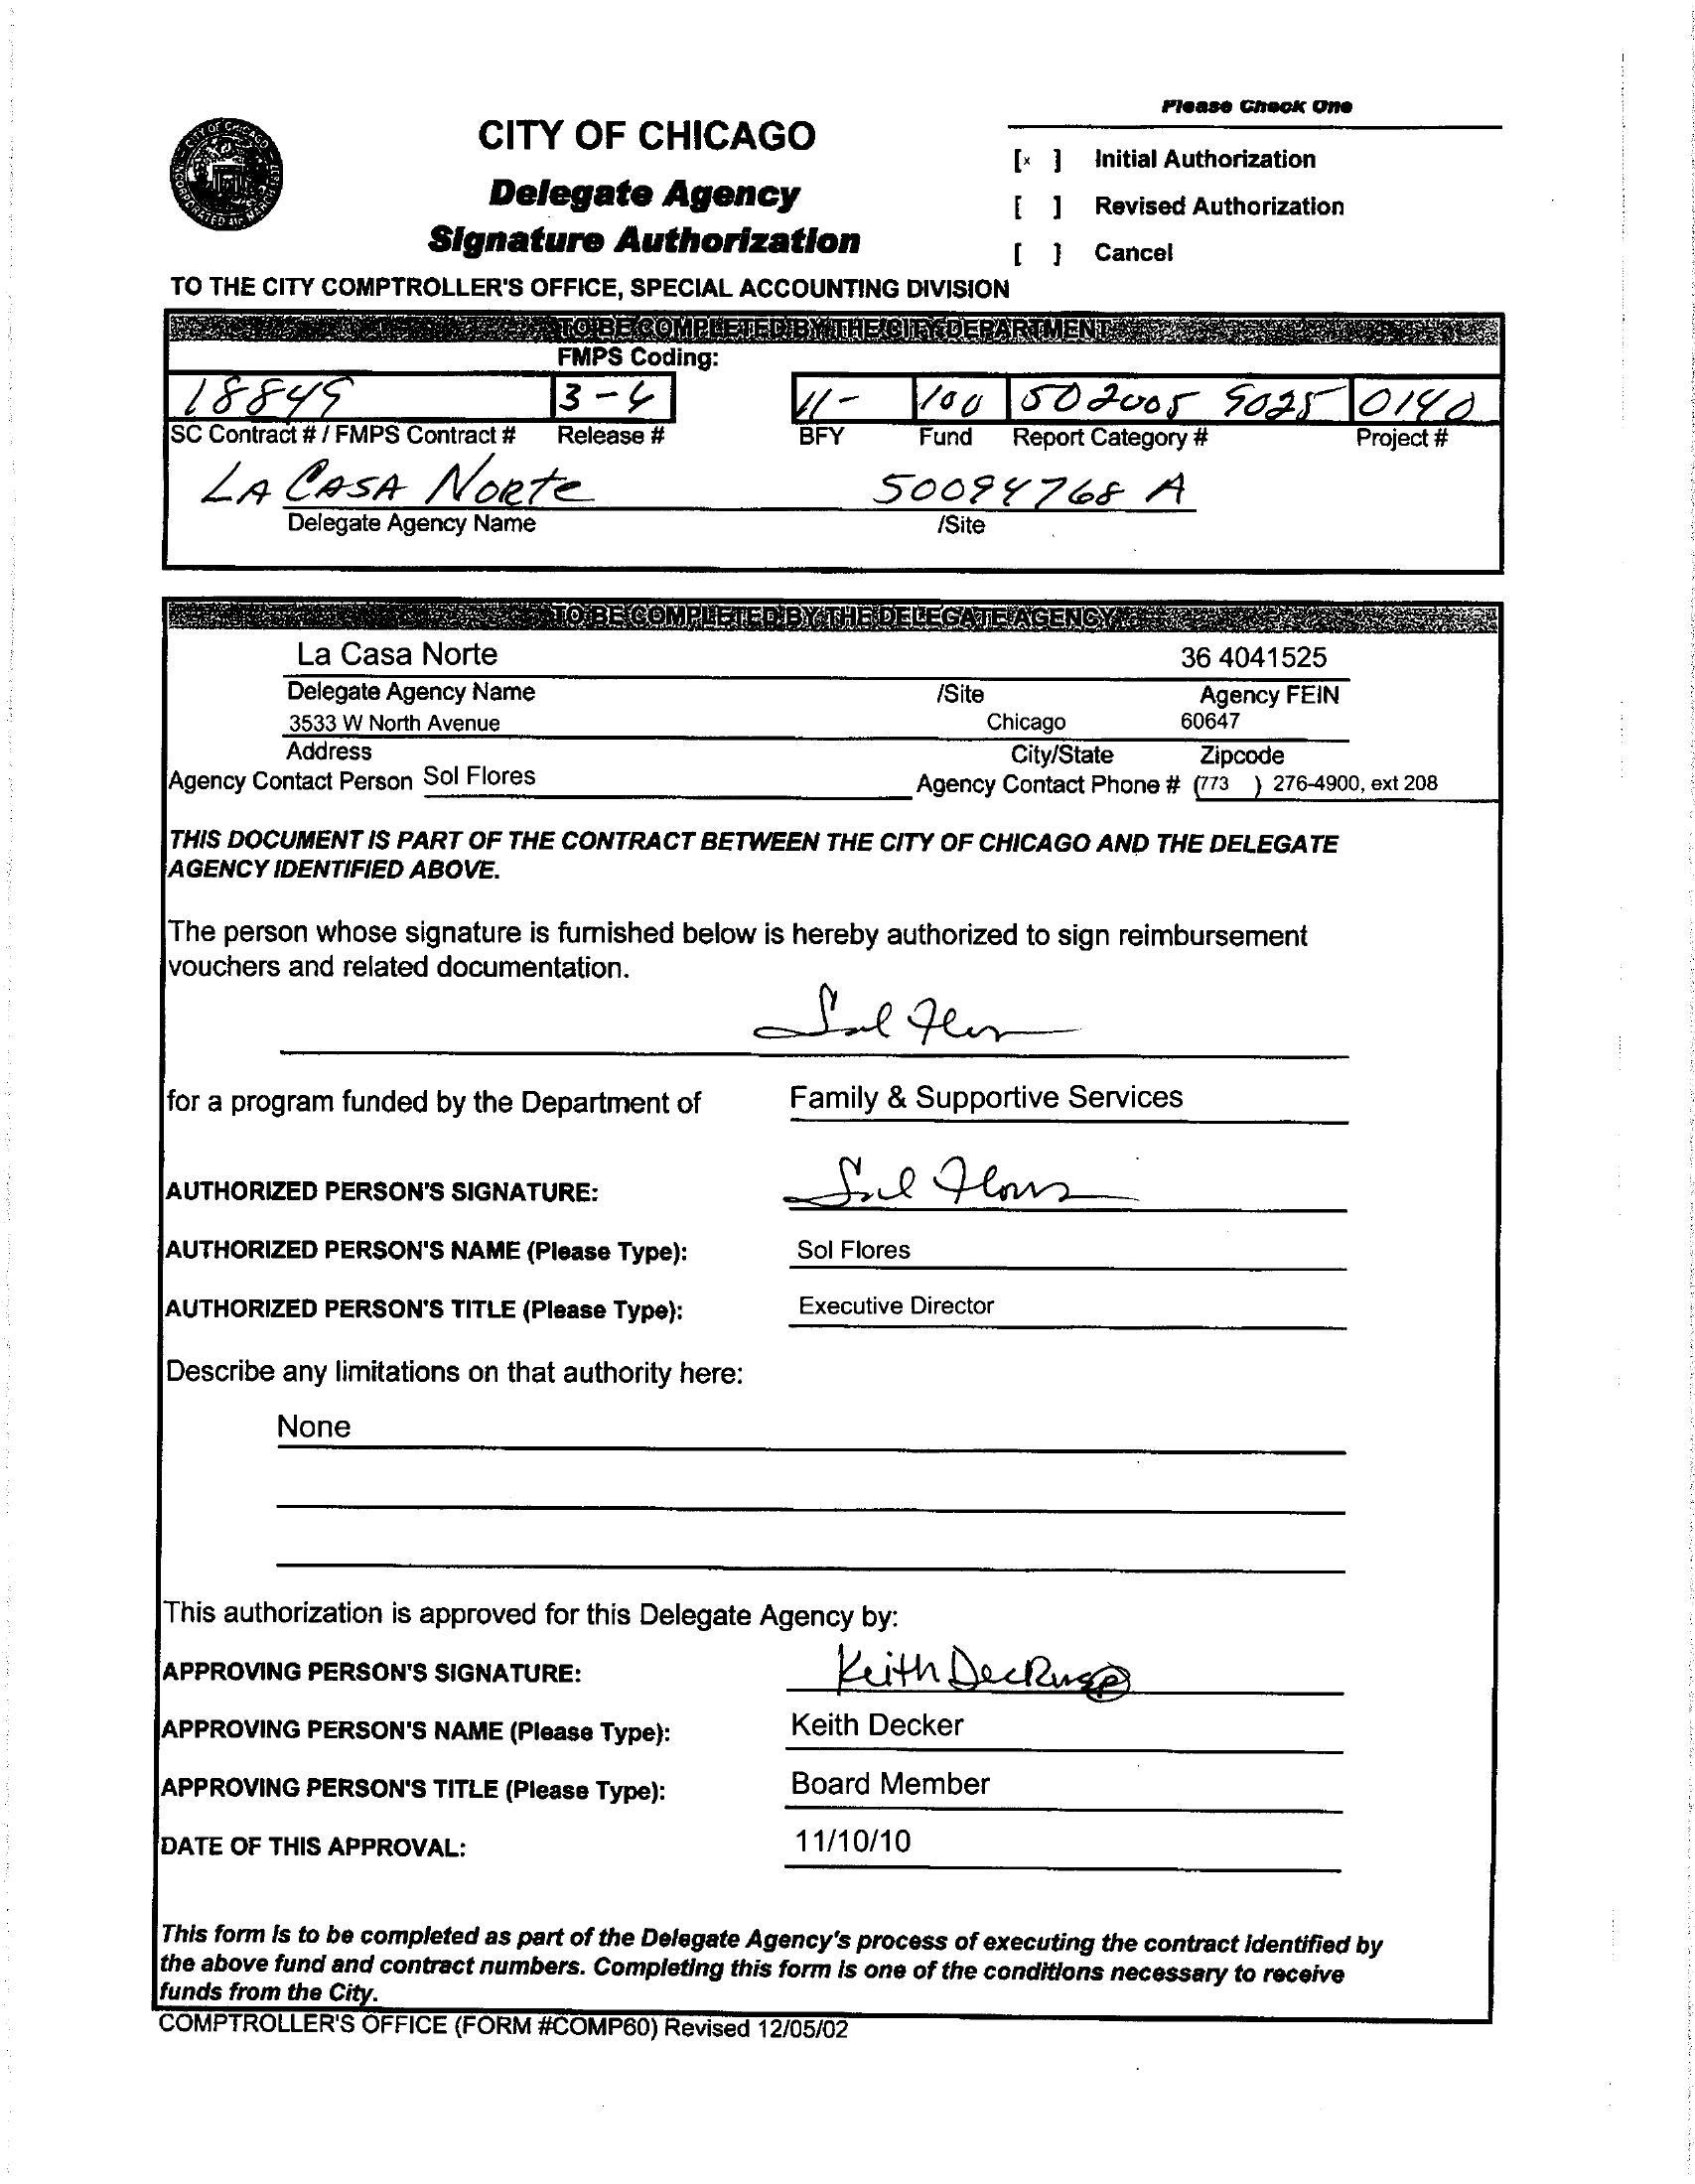 Please Check One
CITY OF CHICAGO
Delegate Agency
Signature Authorization
[x ] Initial Authorization
[ ] Revised Authorization
[ ] Cancel
TO THE CITY COMPTROLLER'S OFFICE, SPECIAL ACCOUNTING DIVISION
TO BE COMPLETED BY THE CITY DEPARTMENT
FMPS Coding:
18849 3-4 11- 100 502005 9025 0140
SC Contract # / FMPS Contract # Release # BFY Fund Report Category # Project #
LA CASA NORTE 50094768 A
Delegate Agency Name /Site
TO BE COMPLETED BY THE DELEGATE AGENCY
La Casa Norte 36 4041525
Delegate Agency Name /Site Agency FEIN
3533 W North Avenue Chicago 60647
Address City/State Zipcode
Agency Contact Person Sol Flores Agency Contact Phone # (773 ) 276-4900, ext 208
THIS DOCUMENT IS PART OF THE CONTRACT BETWEEN THE CITY OF CHICAGO AND THE DELEGATE
AGENCY IDENTIFIED ABOVE.
The person whose signature is furnished below is hereby authorized to sign reimbursement
vouchers and related documentation.
Sol Flores
for a program funded by the Department of Family & Supportive Services
AUTHORIZED PERSON'S SIGNATURE: Sol Flores
AUTHORIZED PERSON'S NAME (Please Type): Sol Flores
AUTHORIZED PERSON'S TITLE (Please Type): Executive Director
Describe any limitations on that authority here:
None
This authorization is approved for this Delegate Agency by:
APPROVING PERSON'S SIGNATURE: Keith Decker
APPROVING PERSON'S NAME (Please Type): Keith Decker
APPROVING PERSON'S TITLE (Please Type): Board Member
DATE OF THIS APPROVAL: 11/10/10
This form is to be completed as part of the Delegate Agency's process of executing the contract identified by
the above fund and contract numbers. Completing this form is one of the conditions necessary to receive
funds from the City.
COMPTROLLER'S OFFICE (FORM #COMP60) Revised 12/05/02